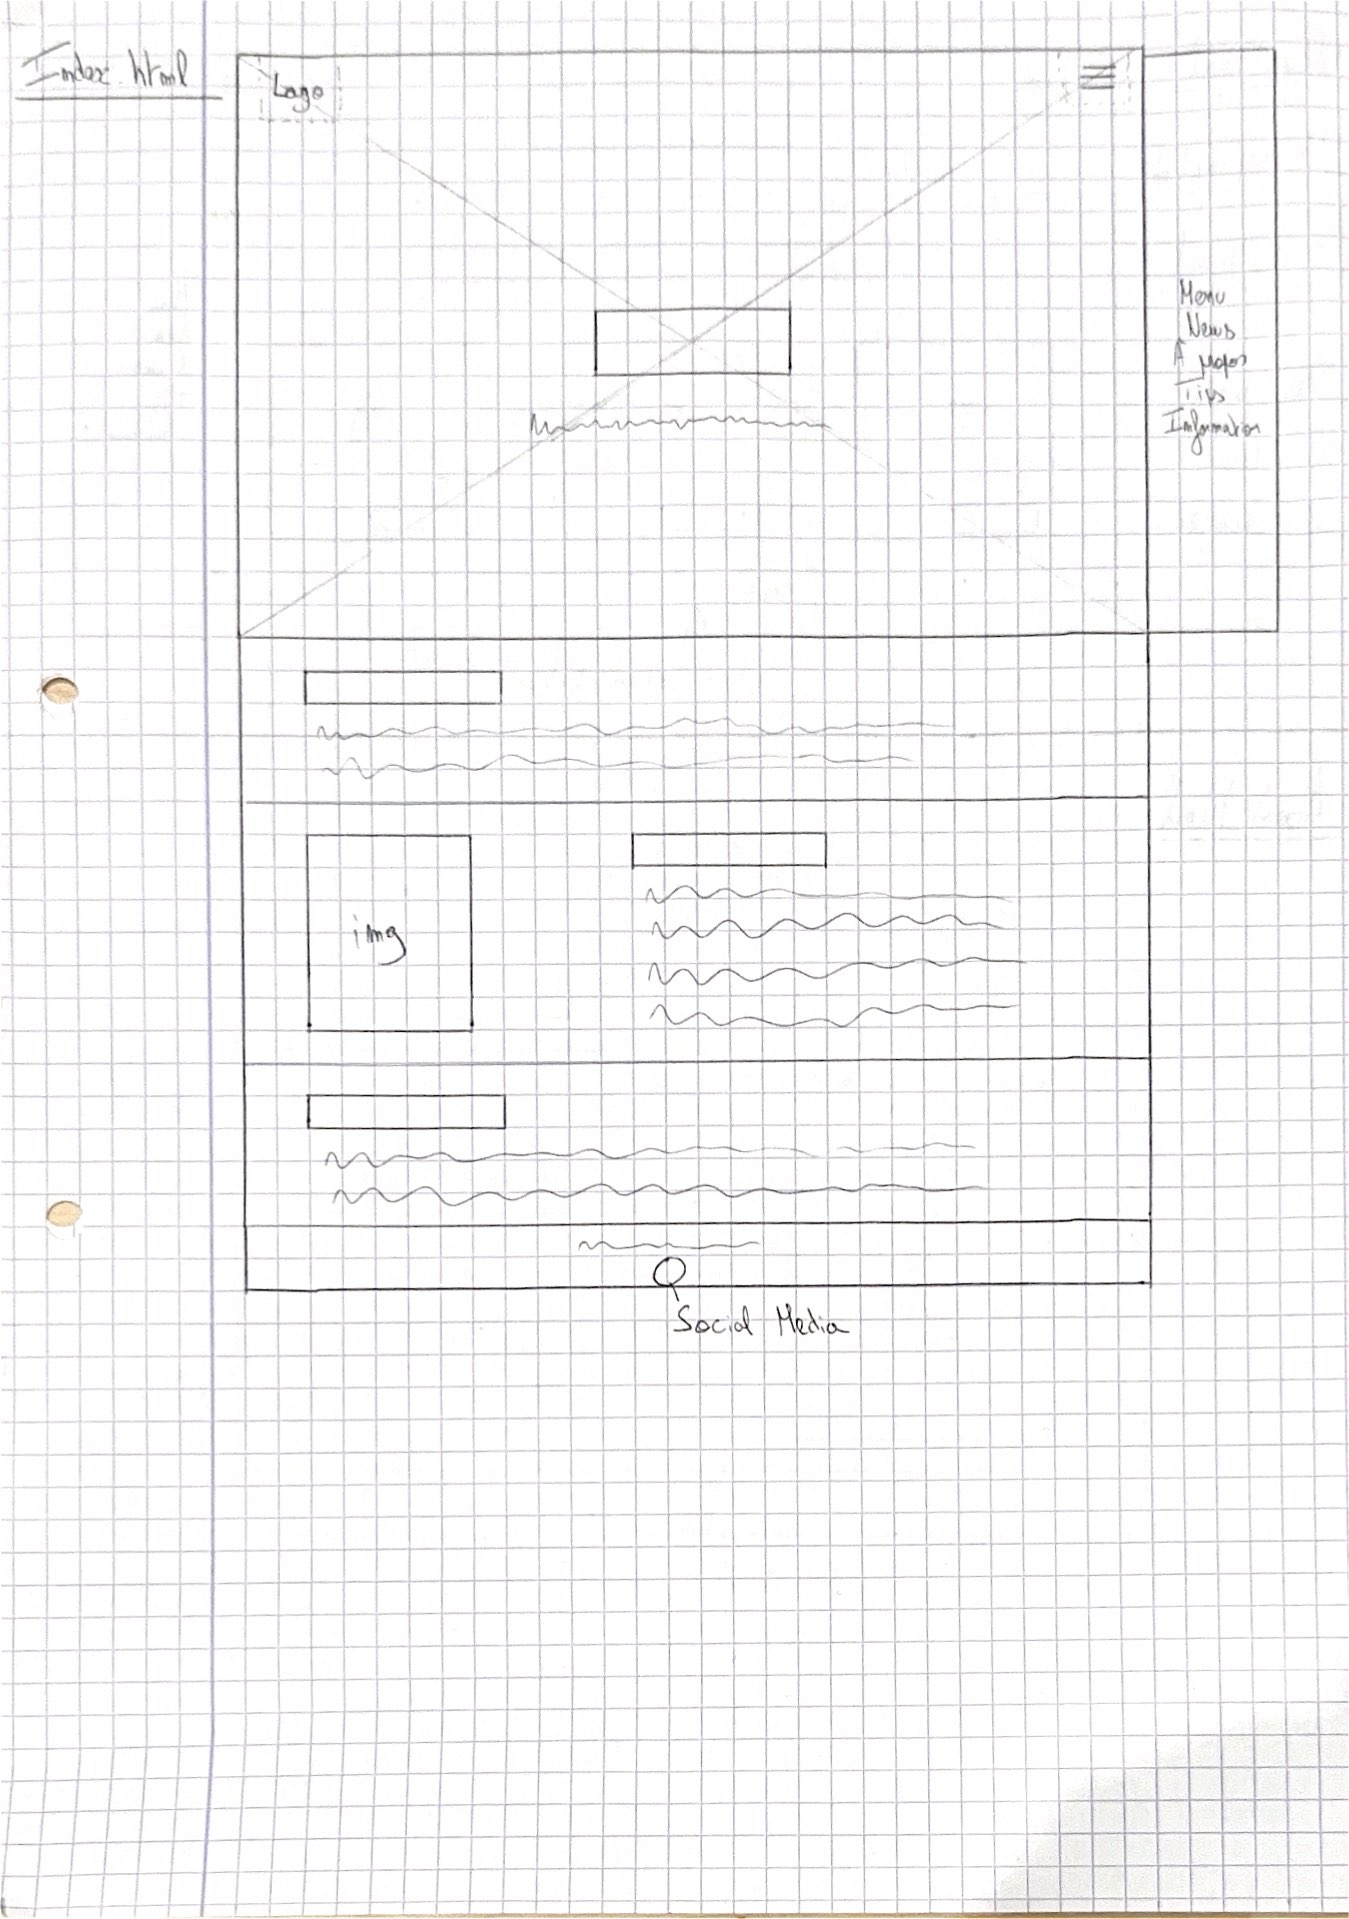 Index.html
Logo
Menu
News
A propos
Tips
Information
img
Social Media